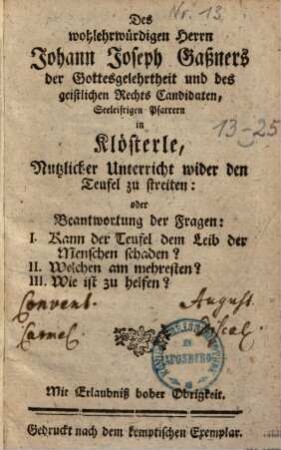 Nr. 13.
Des
wohlehrwürdigen Herrn
Johann Joseph Gaßners
der Gottesgelehrtheit und des
geistlichen Rechts Candidaten,
Seeleifrigen Pfarrern
in
13-25
Klösterle,
Nutzlicher Unterricht wider den
Teufel zu streiten:
oder
Beantwortung der Fragen:
I. Kann der Teufel dem Leib der
Menschen schaden?
II. Welchen am mehresten?
III. Wie ist zu helfen?
Convent. August.
Carmel. Discal.
Mit Erlaubniß hoher Obrigkeit.
Gedruckt nach dem kemptischen Exemplar.